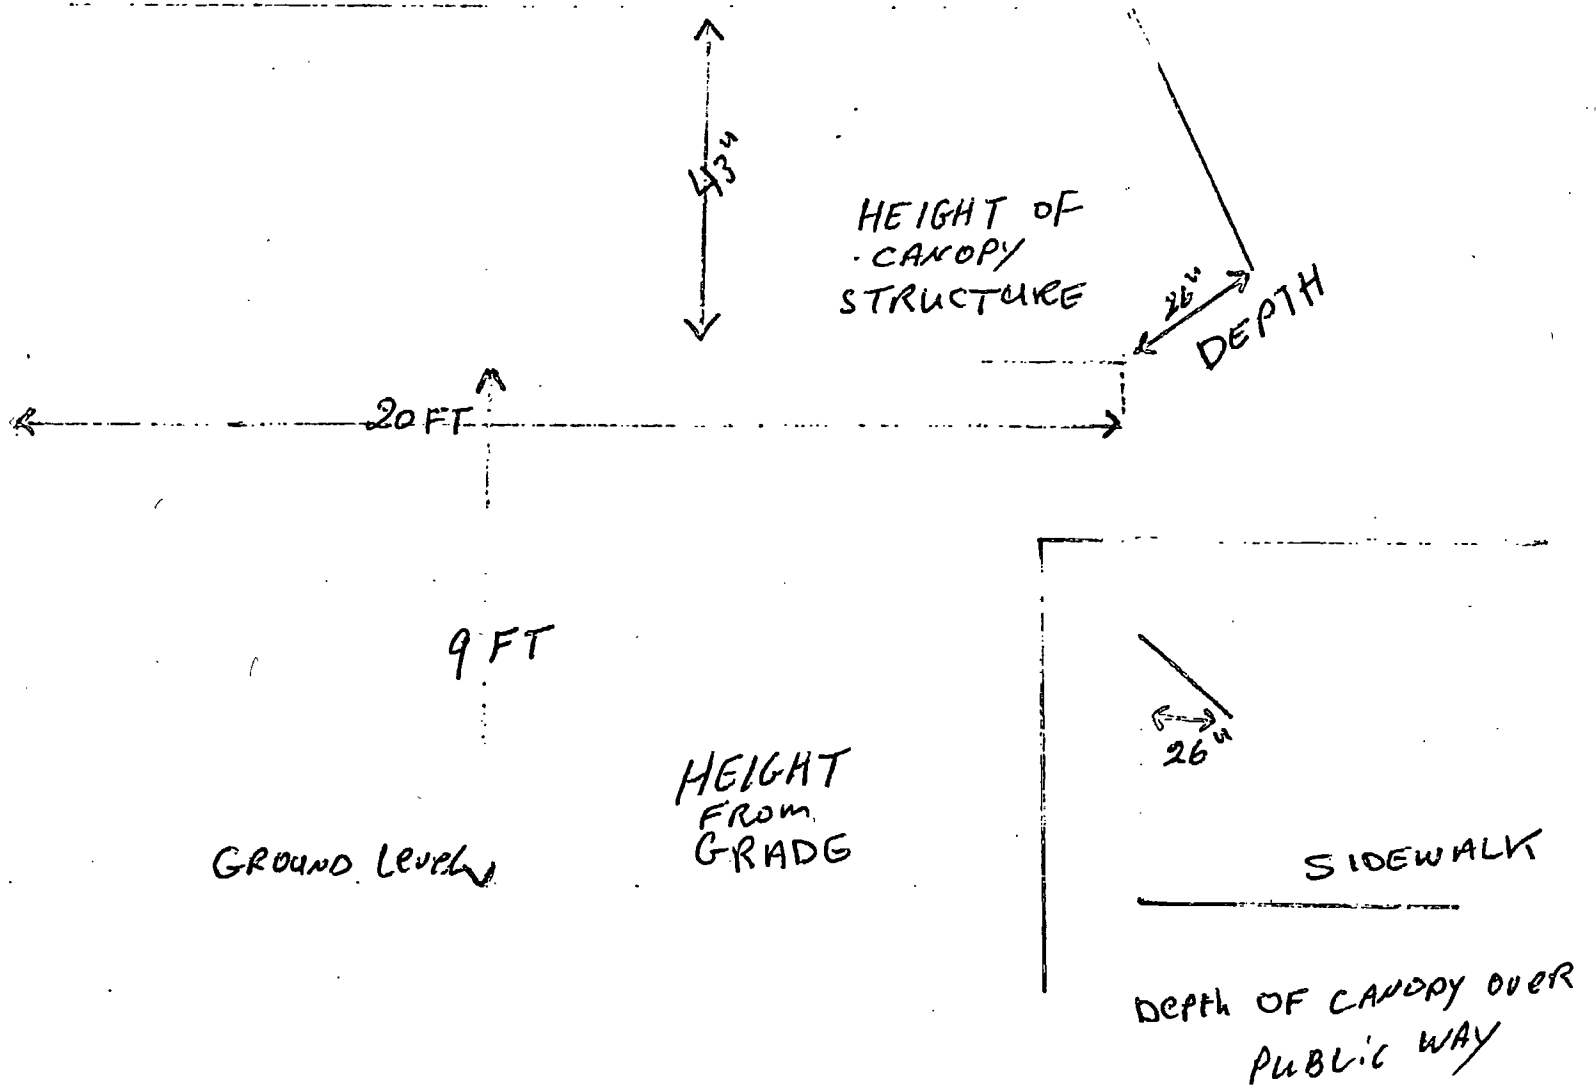 43"
HEIGHT OF
CANOPY
STRUCTURE
26"
DEPTH
20 FT
9 FT
HEIGHT
FROM
GRADE
GROUND Level
26"
SIDEWALK
Depth OF CANOPY OVER
PUBLIC WAY